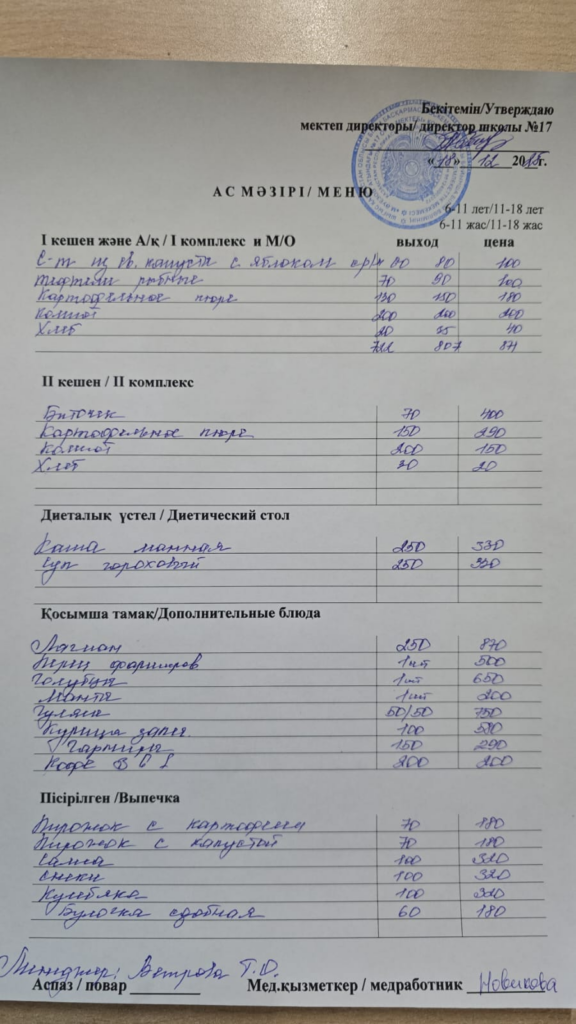 Бекітемін/Утверждаю
мектеп директоры/ директор школы №17
«18» 12 2025г.
АС МӘЗІРІ/ МЕНЮ
6-11 лет/11-18 лет
6-11 жас/11-18 жас
І кешен және А/қ / І комплекс и М/О выход цена
с яблоком р/м 80 100
тефтели рыбные 70 90 100
Картофельное пюре 130 150 180
Компот 200 200 200
Хлеб 20 40
807
ІІ кешен / ІІ комплекс
Биточек 70 400
Картофельное пюре 150 290
Компот 200 150
Хлеб 20
Диеталық үстел / Диетический стол
Каша манная 250 330
Суп гороховый 250 320
Қосымша тамақ/Дополнительные блюда
Лагман 250 870
Перец фарширов 1 шт 500
Голубцы 1 шт 650
Манты 1 шт 200
Гуляш 50/50 750
Курица запеч. 100 580
Гарниры 150 290
Кофе 3 в 1 200 200
Пісірілген /Выпечка
Пирожок с картофелем 70 180
Пирожок с капустой 70 180
Самса 100 320
100 320
Кулебяка 100 320
Булочка сдобная 60 180
Менеджер: Ветрова Т.О.
Аспаз / повар Мед.қызметкер / медработник Новикова